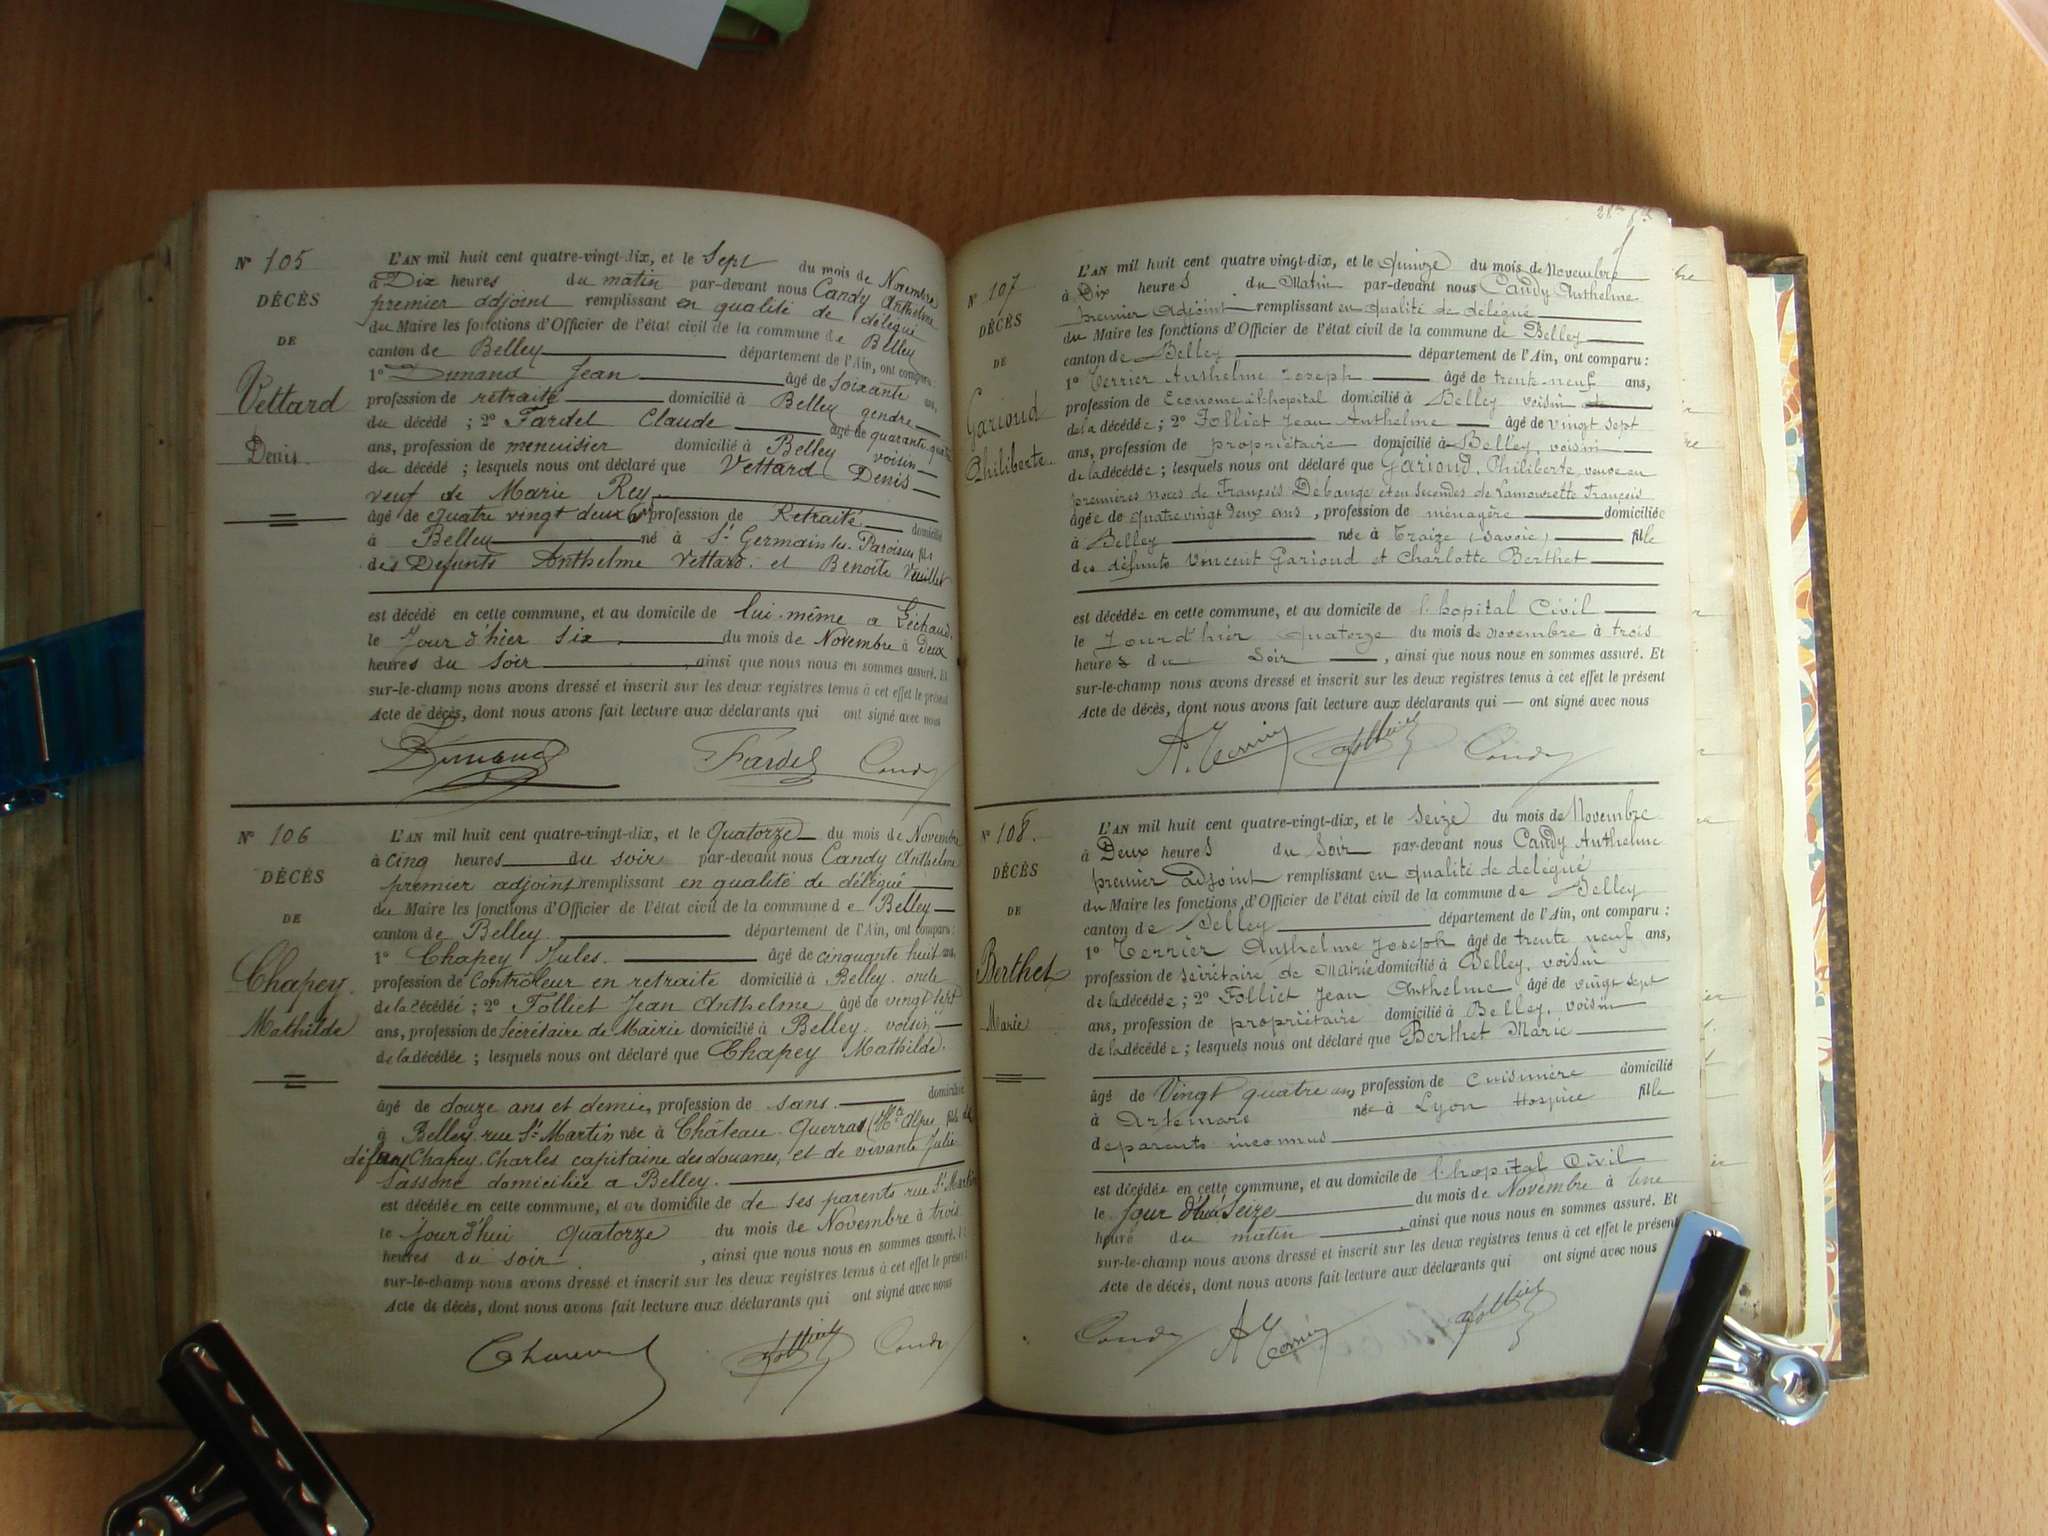 N° 105
DÉCÈS
DE
Vettard
Denis
L'AN mil huit cent quatre-vingt-dix, et le Sept du mois de Novembre
à Dix heures du matin par-devant nous Candy Anthelme
premier adjoint remplissant en qualité de délégué
du Maire les fonctions d'Officier de l'état civil de la commune de Belley
canton de Belley département de l'Ain, ont comparu :
1° Dunand Jean âgé de soixante ans,
profession de retraité domicilié à Belley gendre
du décédé ; 2° Fardel Claude âgé de quarante quatre
ans, profession de menuisier domicilié à Belley voisin
du décédé ; lesquels nous ont déclaré que Vettard Denis
veuf de Marie Rey
âgé de quatre vingt deux ans profession de Retraité domicilié
à Belley né à St Germain les Paroisses fils
des Défunts Anthelme Vettard et Benoîte Vuillet
est décédé en cette commune, et au domicile de lui-même a
le Jour d'hier six du mois de Novembre à Deux
heures du soir, ainsi que nous nous en sommes assuré. Et
sur-le-champ nous avons dressé et inscrit sur les deux registres tenus à cet effet le présent
Acte de décès, dont nous avons fait lecture aux déclarants qui ont signé avec nous
Dunand Fardel Candy
N° 106
DÉCÈS
DE
Chapey
Mathilde
L'AN mil huit cent quatre-vingt-dix, et le Quatorze du mois de Novembre
à cinq heures du soir par-devant nous Candy Anthelme
premier adjoint remplissant en qualité de délégué
du Maire les fonctions d'Officier de l'état civil de la commune de Belley
canton de Belley département de l'Ain, ont comparu :
1° Chapey Jules. âgé de cinquante huit ans,
profession de Contrôleur en retraite domicilié à Belley oncle
de la décédée ; 2° Folliet Jean Anthelme âgé de vingt sept
ans, profession de Secrétaire de Mairie domicilié à Belley voisin
de la décédée ; lesquels nous ont déclaré que Chapey Mathilde.
âgé de douze ans et demie, profession de sans. domiciliée
à Belley rue St Martin née à Château Querras (Htes Alpes fille de
défunt Chapey Charles capitaine des douanes, et de vivante Julie
Sassone domiciliée a Belley.
est décédée en cette commune, et au domicile de de ses parents rue St Martin
le jourd'hui quatorze du mois de Novembre à trois
heures du soir, ainsi que nous nous en sommes assuré. Et
sur-le-champ nous avons dressé et inscrit sur les deux registres tenus à cet effet le présent
Acte de décès, dont nous avons fait lecture aux déclarants qui ont signé avec nous
Folliet Candy
N° 107
DÉCÈS
DE
Garioud
Philiberte.
L'AN mil huit cent quatre vingt-dix, et le Quinze du mois de Novembre
à Dix heures du Matin par-devant nous Candy Anthelme
premier Adjoint remplissant en qualité de délégué
du Maire les fonctions d'Officier de l'état civil de la commune de Belley
canton de Belley département de l'Ain, ont comparu :
1° Terrier Anthelme Joseph âgé de trente-neuf ans,
profession de Econome à l'hopital domicilié à Belley voisin
de la décédée ; 2° Folliet Jean Anthelme âgé de vingt sept
ans, profession de propriétaire domicilié à Belley, voisin
de la décédée ; lesquels nous ont déclaré que Garioud, Philiberte, veuve en
premières noces de François Débange et en secondes de Lamourette François
âgée de quatre vingt deux ans, profession de ménagère domiciliée
à Belley née à Traize (Savoie) fille
des défunts Vincent Garioud et Charlotte Berthet
est décédée en cette commune, et au domicile de l'hopital Civil
le Jour d'hier quatorze du mois de novembre à trois
heures du soir, ainsi que nous nous en sommes assuré. Et
sur-le-champ nous avons dressé et inscrit sur les deux registres tenus à cet effet le présent
Acte de décès, dont nous avons fait lecture aux déclarants qui — ont signé avec nous
A. Terrier Folliet Candy
N° 108.
DÉCÈS
DE
Berthet
Marie
L'AN mil huit cent quatre-vingt-dix, et le Seize du mois de Novembre
à Deux heures du Soir par-devant nous Candy Anthelme
premier adjoint remplissant en qualité de délégué
du Maire les fonctions d'Officier de l'état civil de la commune de Belley
canton de Belley département de l'Ain, ont comparu :
1° Terrier Anthelme Joseph âgé de trente neuf ans,
profession de secrétaire de Mairie domicilié à Belley, voisin
de la décédée ; 2° Folliet Jean Anthelme âgé de vingt sept
ans, profession de propriétaire domicilié à Belley, voisin
de la décédée ; lesquels nous ont déclaré que Berthet Marie
âgé de Vingt quatre ans profession de cuisinière domicilié
à Artemare née à Lyon Hospice fille
de parents inconnus
est décédée en cette commune, et au domicile de l'hopital Civil
le jour d'hui Seize du mois de Novembre à une
heure du matin, ainsi que nous nous en sommes assuré. Et
sur-le-champ nous avons dressé et inscrit sur les deux registres tenus à cet effet le présent
Acte de décès, dont nous avons fait lecture aux déclarants qui ont signé avec nous
Candy A Terrier Folliet